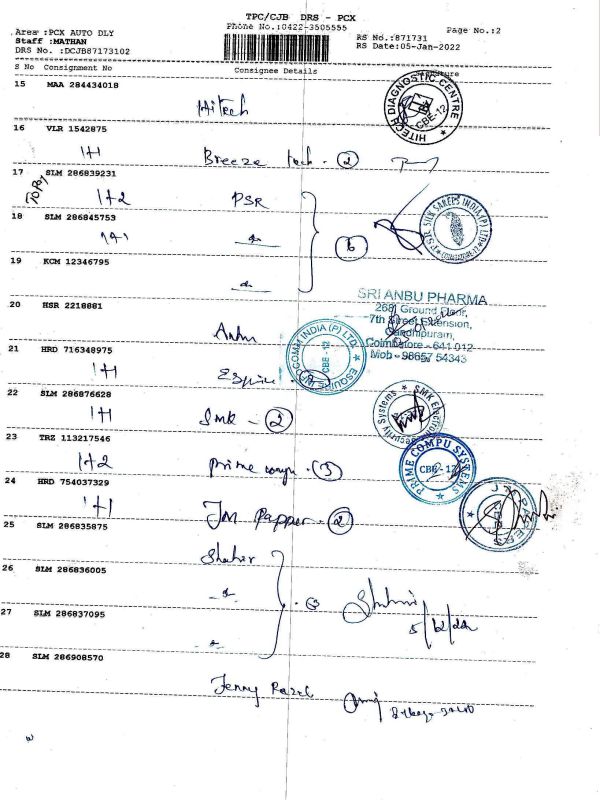 TPC/CJB DRS - PCX
Phone No.:0422-3505555
Page No.:2
Area :PCX AUTO DLY
Staff :MATHAN
DRS No. :DCJB87173102
RS No.:871731
RS Date:05-Jan-2022
S No Consignment No Consignee Details Signature
15 MAA 284434018
Hitech
HITECH DIAGNOSTIC CENTRE
CBE-12
16 VLR 1542875
1+1 Breeze tech - 2
17 SLM 286839231
1+2 PSR
PSR SILK SAREES INDIA (P) LTD
18 SLM 286845753
1+1
6
19 KCM 12346795
20 HSR 2218881
SRI ANBU PHARMA
268, Ground Floor,
7th Street Extension,
Gandhipuram,
Coimbatore - 641 012
Mob - 98657 54343
Anbu
21 HRD 716348975
1+1
ESQUIRE INFOCOMM INDIA (P) LTD
CBE - 12
22 SLM 286876628
1+1 SMK - 2
SMK Electro Security Systems
23 TRZ 113217546
1+2 prime compu - 3
PRIME COMPU SYSTEMS
CBE - 12
24 HRD 754037329
1+1 JM Papper - 2
25 SLM 286835875
26 SLM 286836005
27 SLM 286837095
28 SLM 286908570